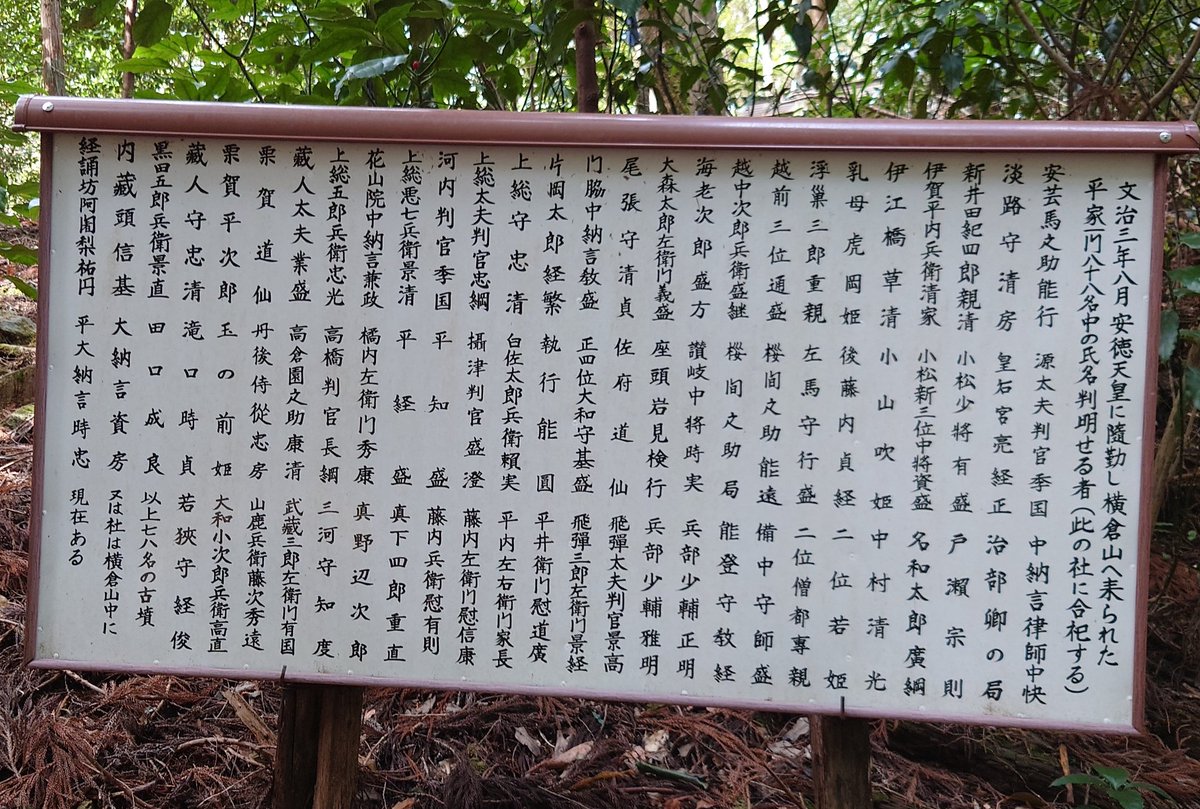 文治三年八月安徳天皇に隨勤し横倉山へ来られた
平家一門八十八名中の氏名判明せる者(此の社に合祀する)
安芸馬之助能行 源太夫判官季国 中納言律師中快
淡路守清房 皇后宮亮経正 治部卿の局
新井田紀四郎親清 小松少将有盛 戸瀬宗則
伊賀平内兵衛清家 小松新三位中将資盛 名和太郎廣綱
伊江橋草清 小山吹姫 中村清光
乳母虎岡姫 後藤内貞経 二位若姫
浮巢三郎重親 左馬守行盛 二位僧都專親
越前三位通盛 桜間之助能遠 備中守師盛
越中次郎兵衛盛継 桜間之助局 能登守教経
海老次郎盛方 讃岐中将時実 兵部少輔正明
大森太郎左衛門義盛 座頭岩見検行 兵部少輔雅明
尾張守清貞 佐府道仙 飛彈太夫判官景高
門脇中納言教盛 正四位大和守基盛 飛彈三郎左衛門景経
片岡太郎経繁 執行能圓 平井衛門慰道廣
上総守忠清 臼佐太郎兵衛頼実 平内左右衛門家長
上総太夫判官忠綱 攝津判官盛澄 藤内左衛門慰信康
河内判官季国 平知盛 藤内兵衛慰有則
上総悪七兵衛景清 平経盛 真下四郎重直
花山院中納言兼政 橘内左衛門秀康 真野辺次郎
上総五郎兵衛忠光 高橋判官長綱 三河守知度
蔵人太夫業盛 高倉園之助康清 武蔵三郎左衛門有国
栗賀道仙 丹後侍從忠房 山鹿兵衛藤次秀遠
栗賀平次郎 玉の前姫 大和小次郎兵衛高直
蔵人守忠清 滝口時貞 若狭守経俊
黒田五郎兵衛景直 田口成良 以上七八名の古墳
内蔵頭信基 大納言資房 又は社は横倉山中に
経誦坊阿闍梨祐円 平大納言時忠 現在ある